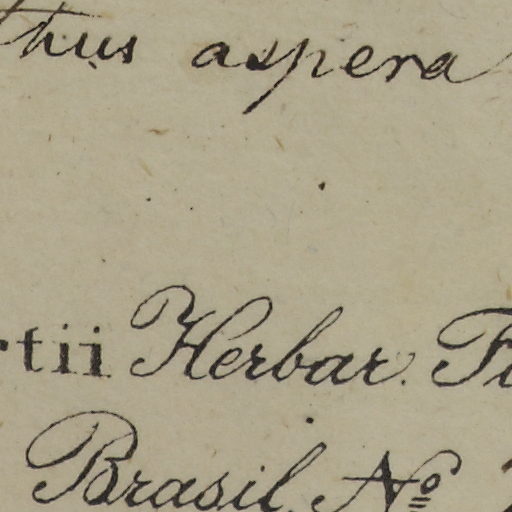 thus aspera
rtii Herbar. Fl
Brasil. No